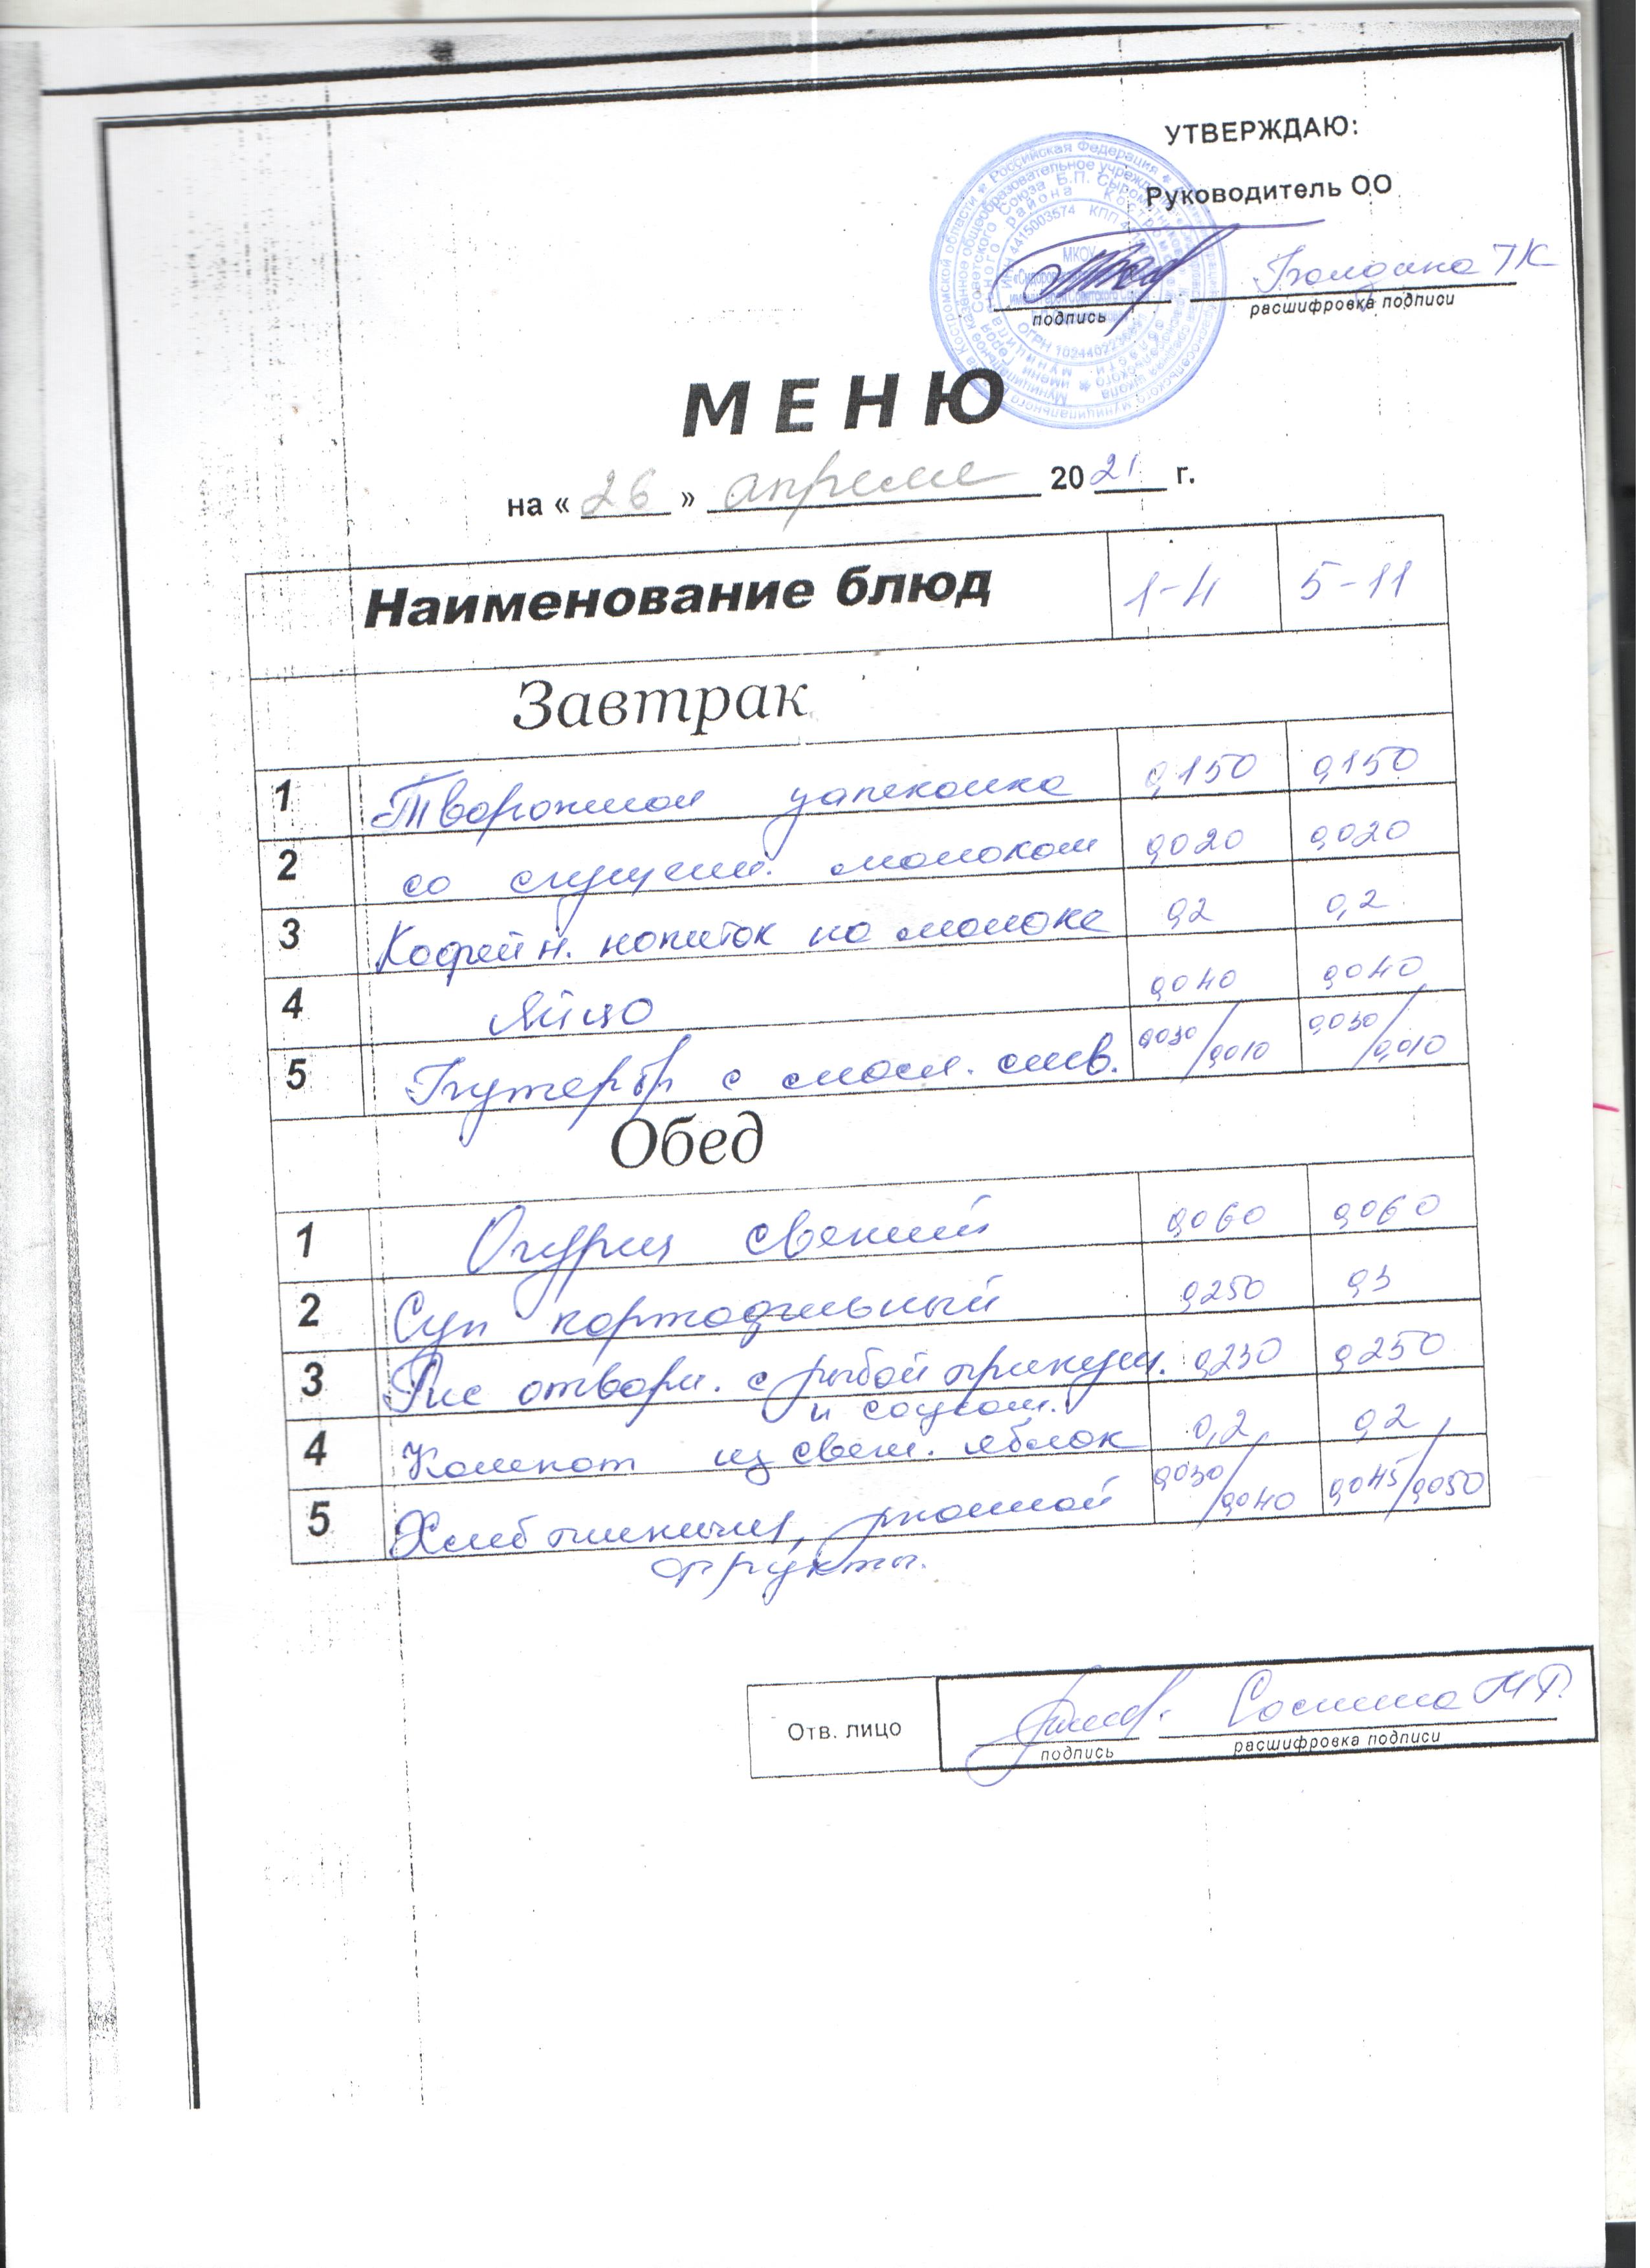 УТВЕРЖДАЮ:
Руководитель ОО
подпись расшифровка подписи
МЕНЮ
на « 26 » апреля 2021 г.
Наименование блюд 1-4 5-11
Завтрак
1 Творожная запеканка 0,150 0,150
2 со сгущен. молоком 0,020 0,020
3 Кофейн. напиток на молоке 0,2 0,2
4 Яйцо 0,040 0,040
5 Бутербр с масл. слив. 0,030/0,010 0,030/0,010
Обед
1 Огурец свежий 0,060 0,060
2 Суп картофельный 0,250 0,3
3 Рис отварн. с рыбой припущ. 0,230 0,250
и соусом.
4 Компот из свеж. яблок 0,2 0,2
5 Хлеб пшеничн, ржаной 0,030/0,040 0,045/0,050
фрукты.
Отв. лицо
подпись расшифровка подписи